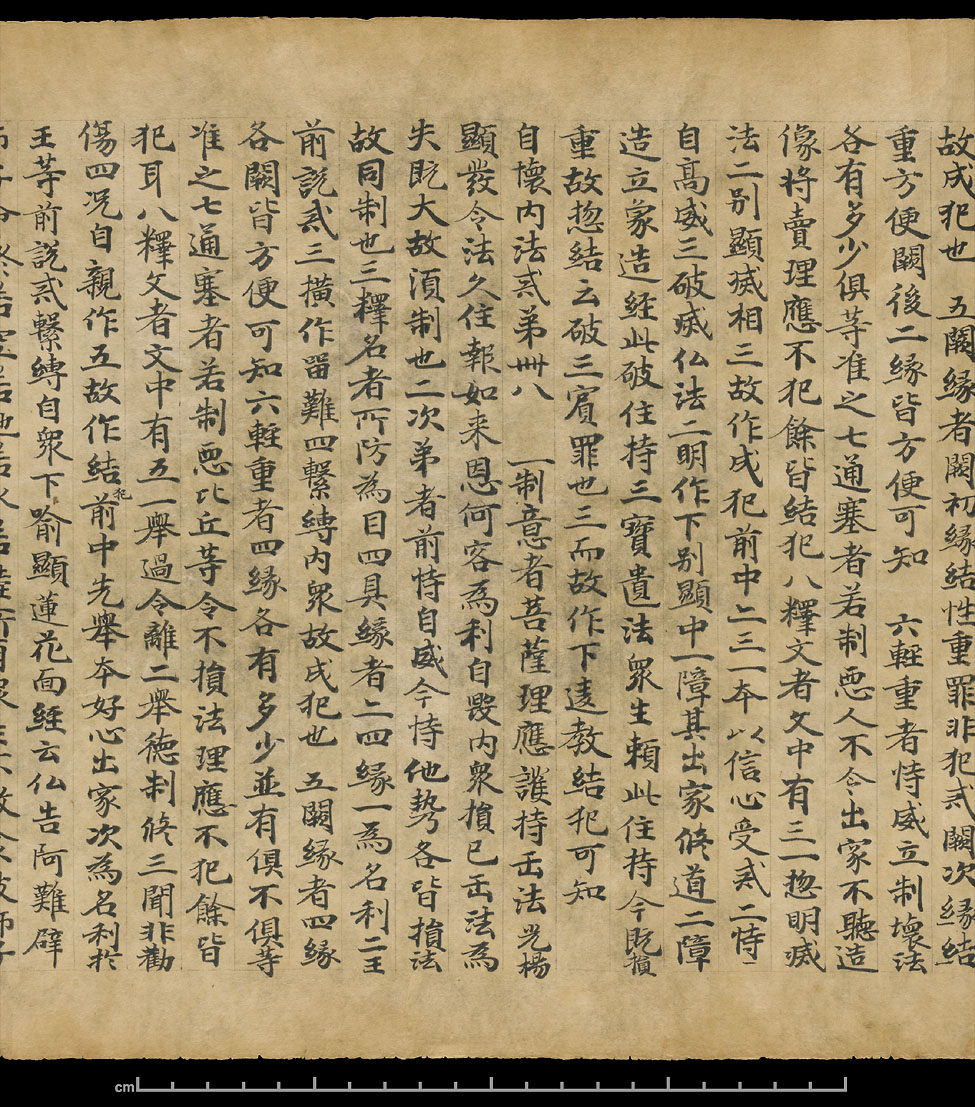 故成犯也　五闕緣者闕初緣結性重罪非犯貳闕次緣結
重方便闕後二緣皆方便可知　六軽重者恃威立制壞法
各有多少俱等准之七通塞者若制悪人不令出家不聽造
像將賣理應不犯餘皆結犯八釋文者文中有三一惣明滅
法二別顯滅相三故作成犯前中二三一夲以信心受貳二恃
自高威三破滅仏法二明作下別顯中一障其出家修道二障
造立象造経此破住持三寳遺法衆生頼此住持今既損
重故惣結云破三寳罪也三而故作下違教結犯可知
自壞內法貳弟卌八　一制意者菩薩理應護持正法光楊
顯發令法久住報如来恩何容為利自毀內衆損已正法為
失既大故湏制也二次弟者前恃自威今恃他勢各皆損法
故同制也三釋名者所防為目四具緣者二四緣一為名利二王
前説貳三撗作留難四繫縛內衆故成犯也　五闕緣者四緣
各闕皆方便可知六軽重者四緣各有多少並有俱不俱等
准之七通塞者若制悪比丘等令不損法理應不犯餘皆
犯耳八釋文者文中有五一舉過令離二舉徳制修三聞非勸
傷四况自親作五故作結犯前中先舉夲好心出家次為名利於
王等前説貳繫縛自衆下喻顯蓮花面経云仏告阿難辟